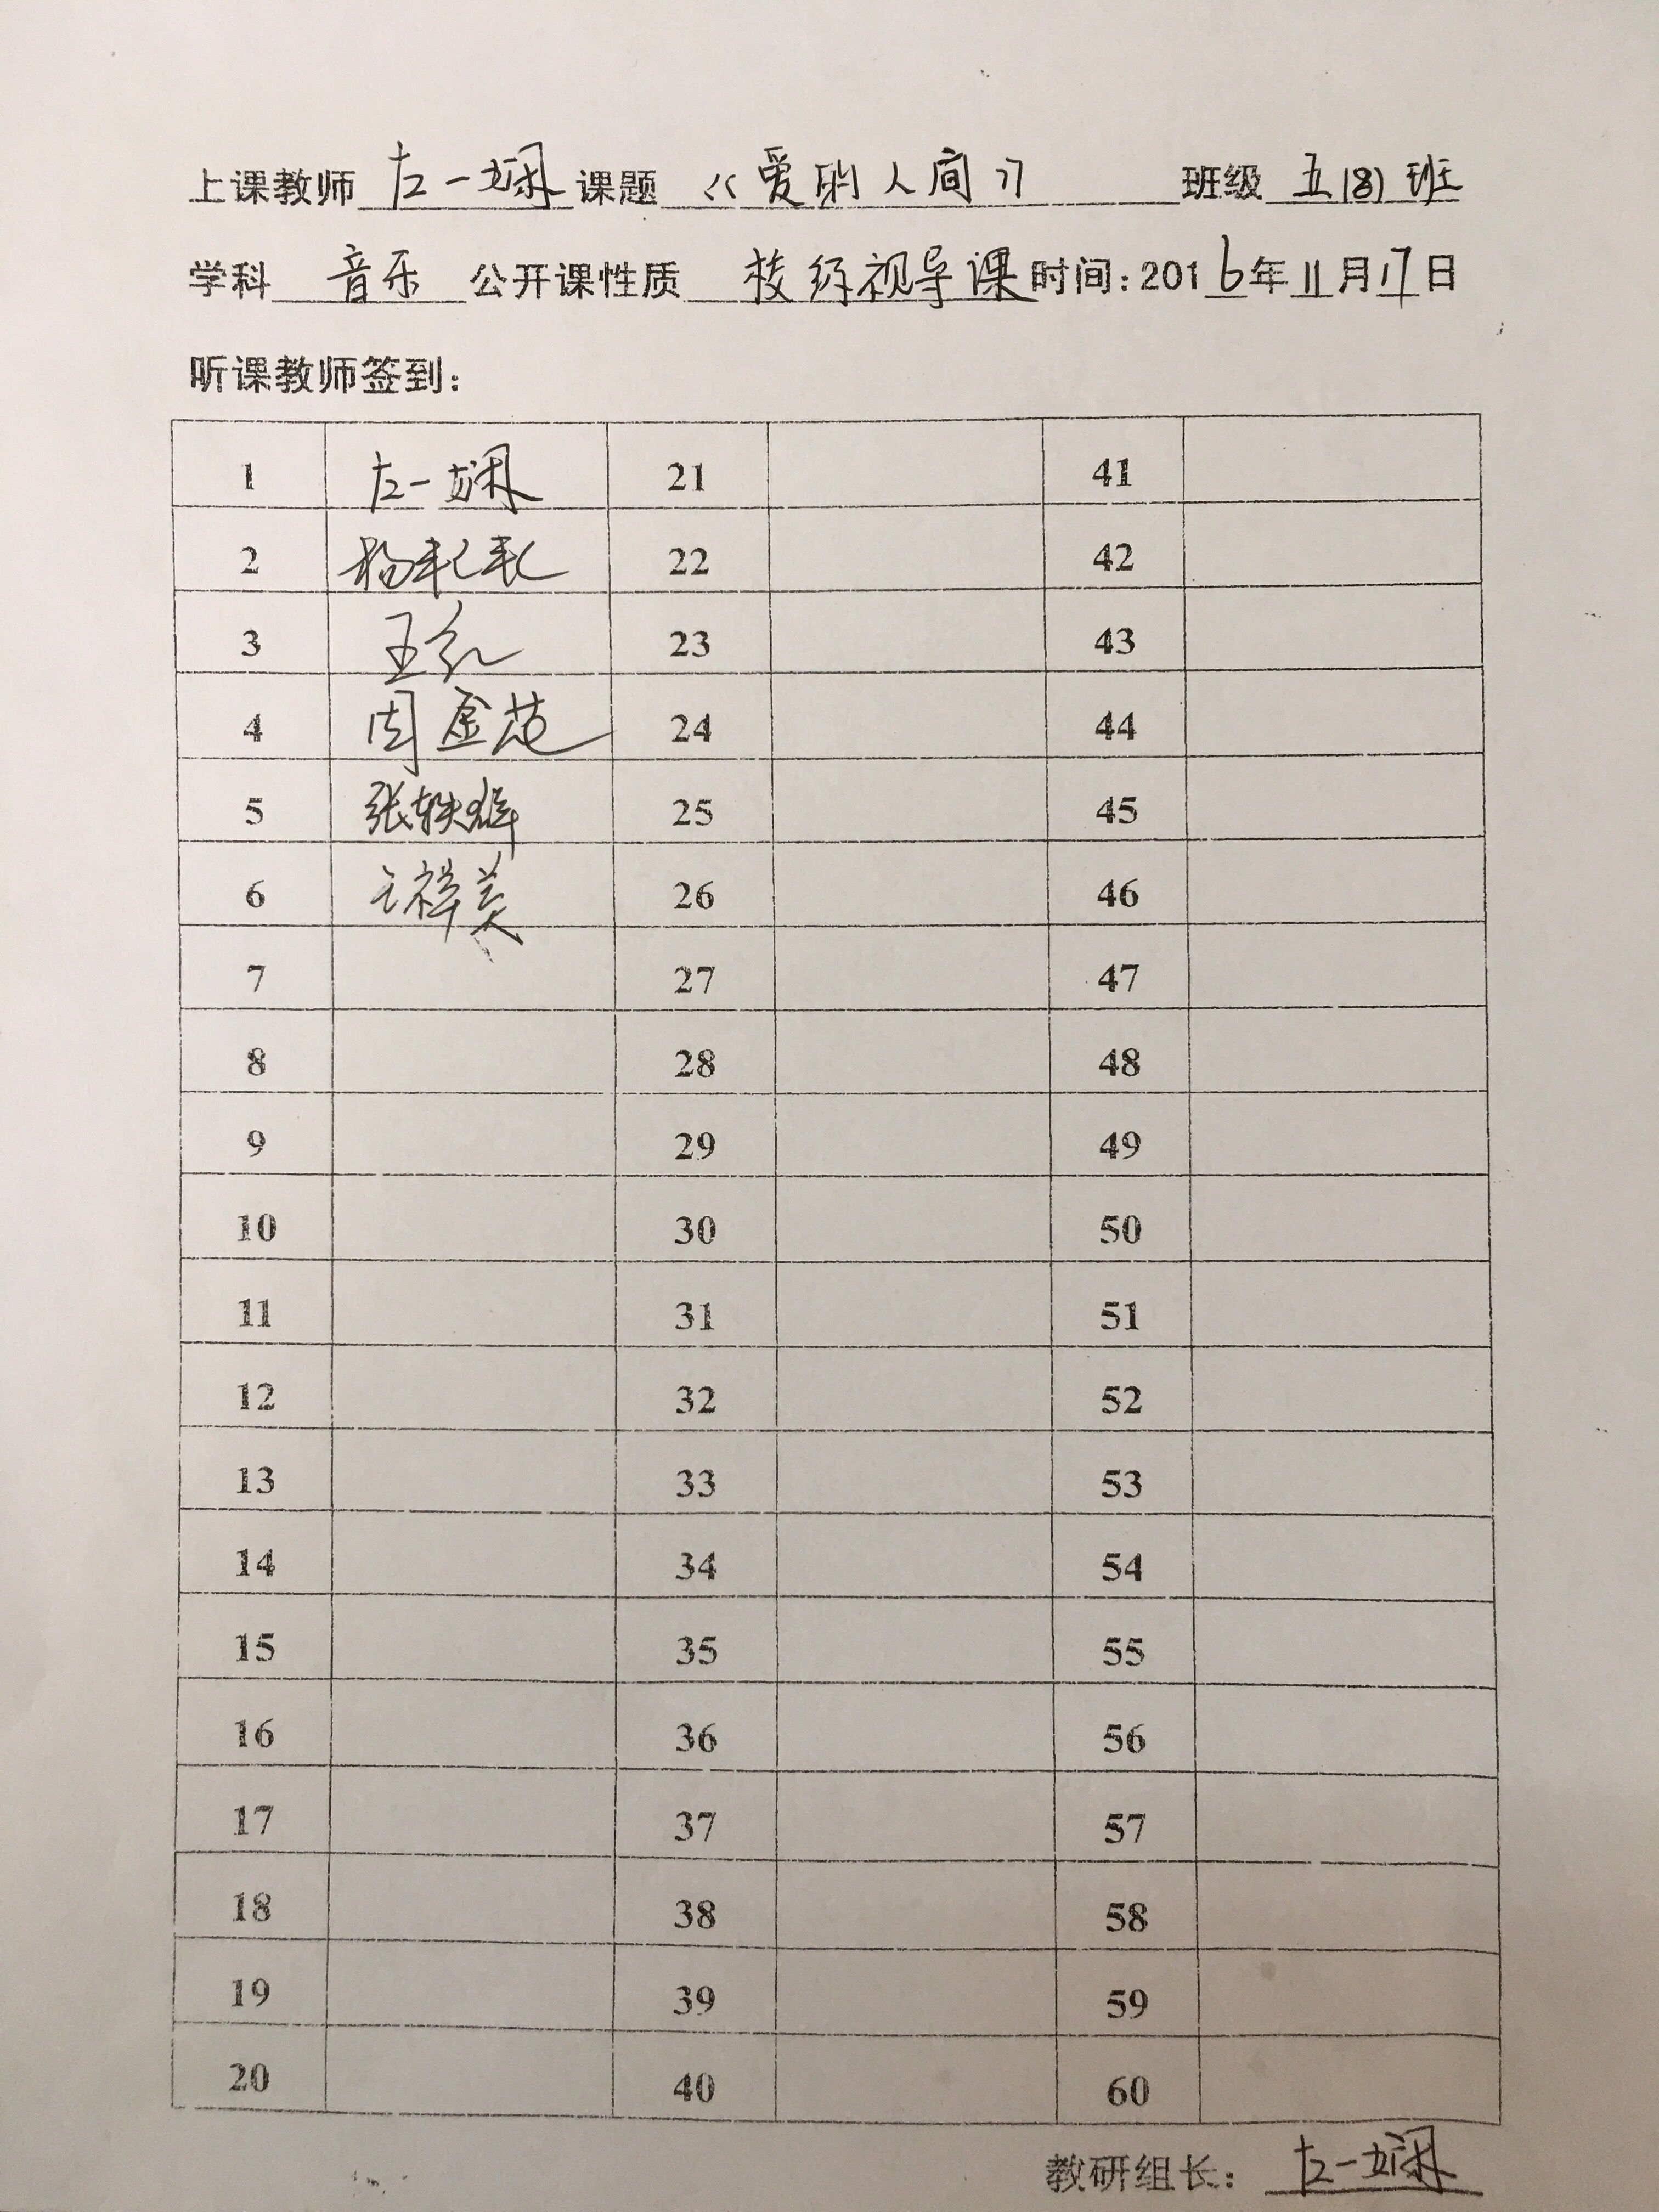 上课教师 左一娴 课题 《爱的人间》 班级 五(8)班
学科 音乐 公开课性质 校级视导课 时间:2016年11月17日
听课教师签到:
1 左一娴 21 41
2 杨 22 42
3 王红 23 43
4 周金 24 44
5 张轶 25 45
6 王祥美 26 46
7 27 47
8 28 48
9 29 49
10 30 50
11 31 51
12 32 52
13 33 53
14 34 54
15 35 55
16 36 56
17 37 57
18 38 58
19 39 59
20 40 60
教研组长: 左一娴